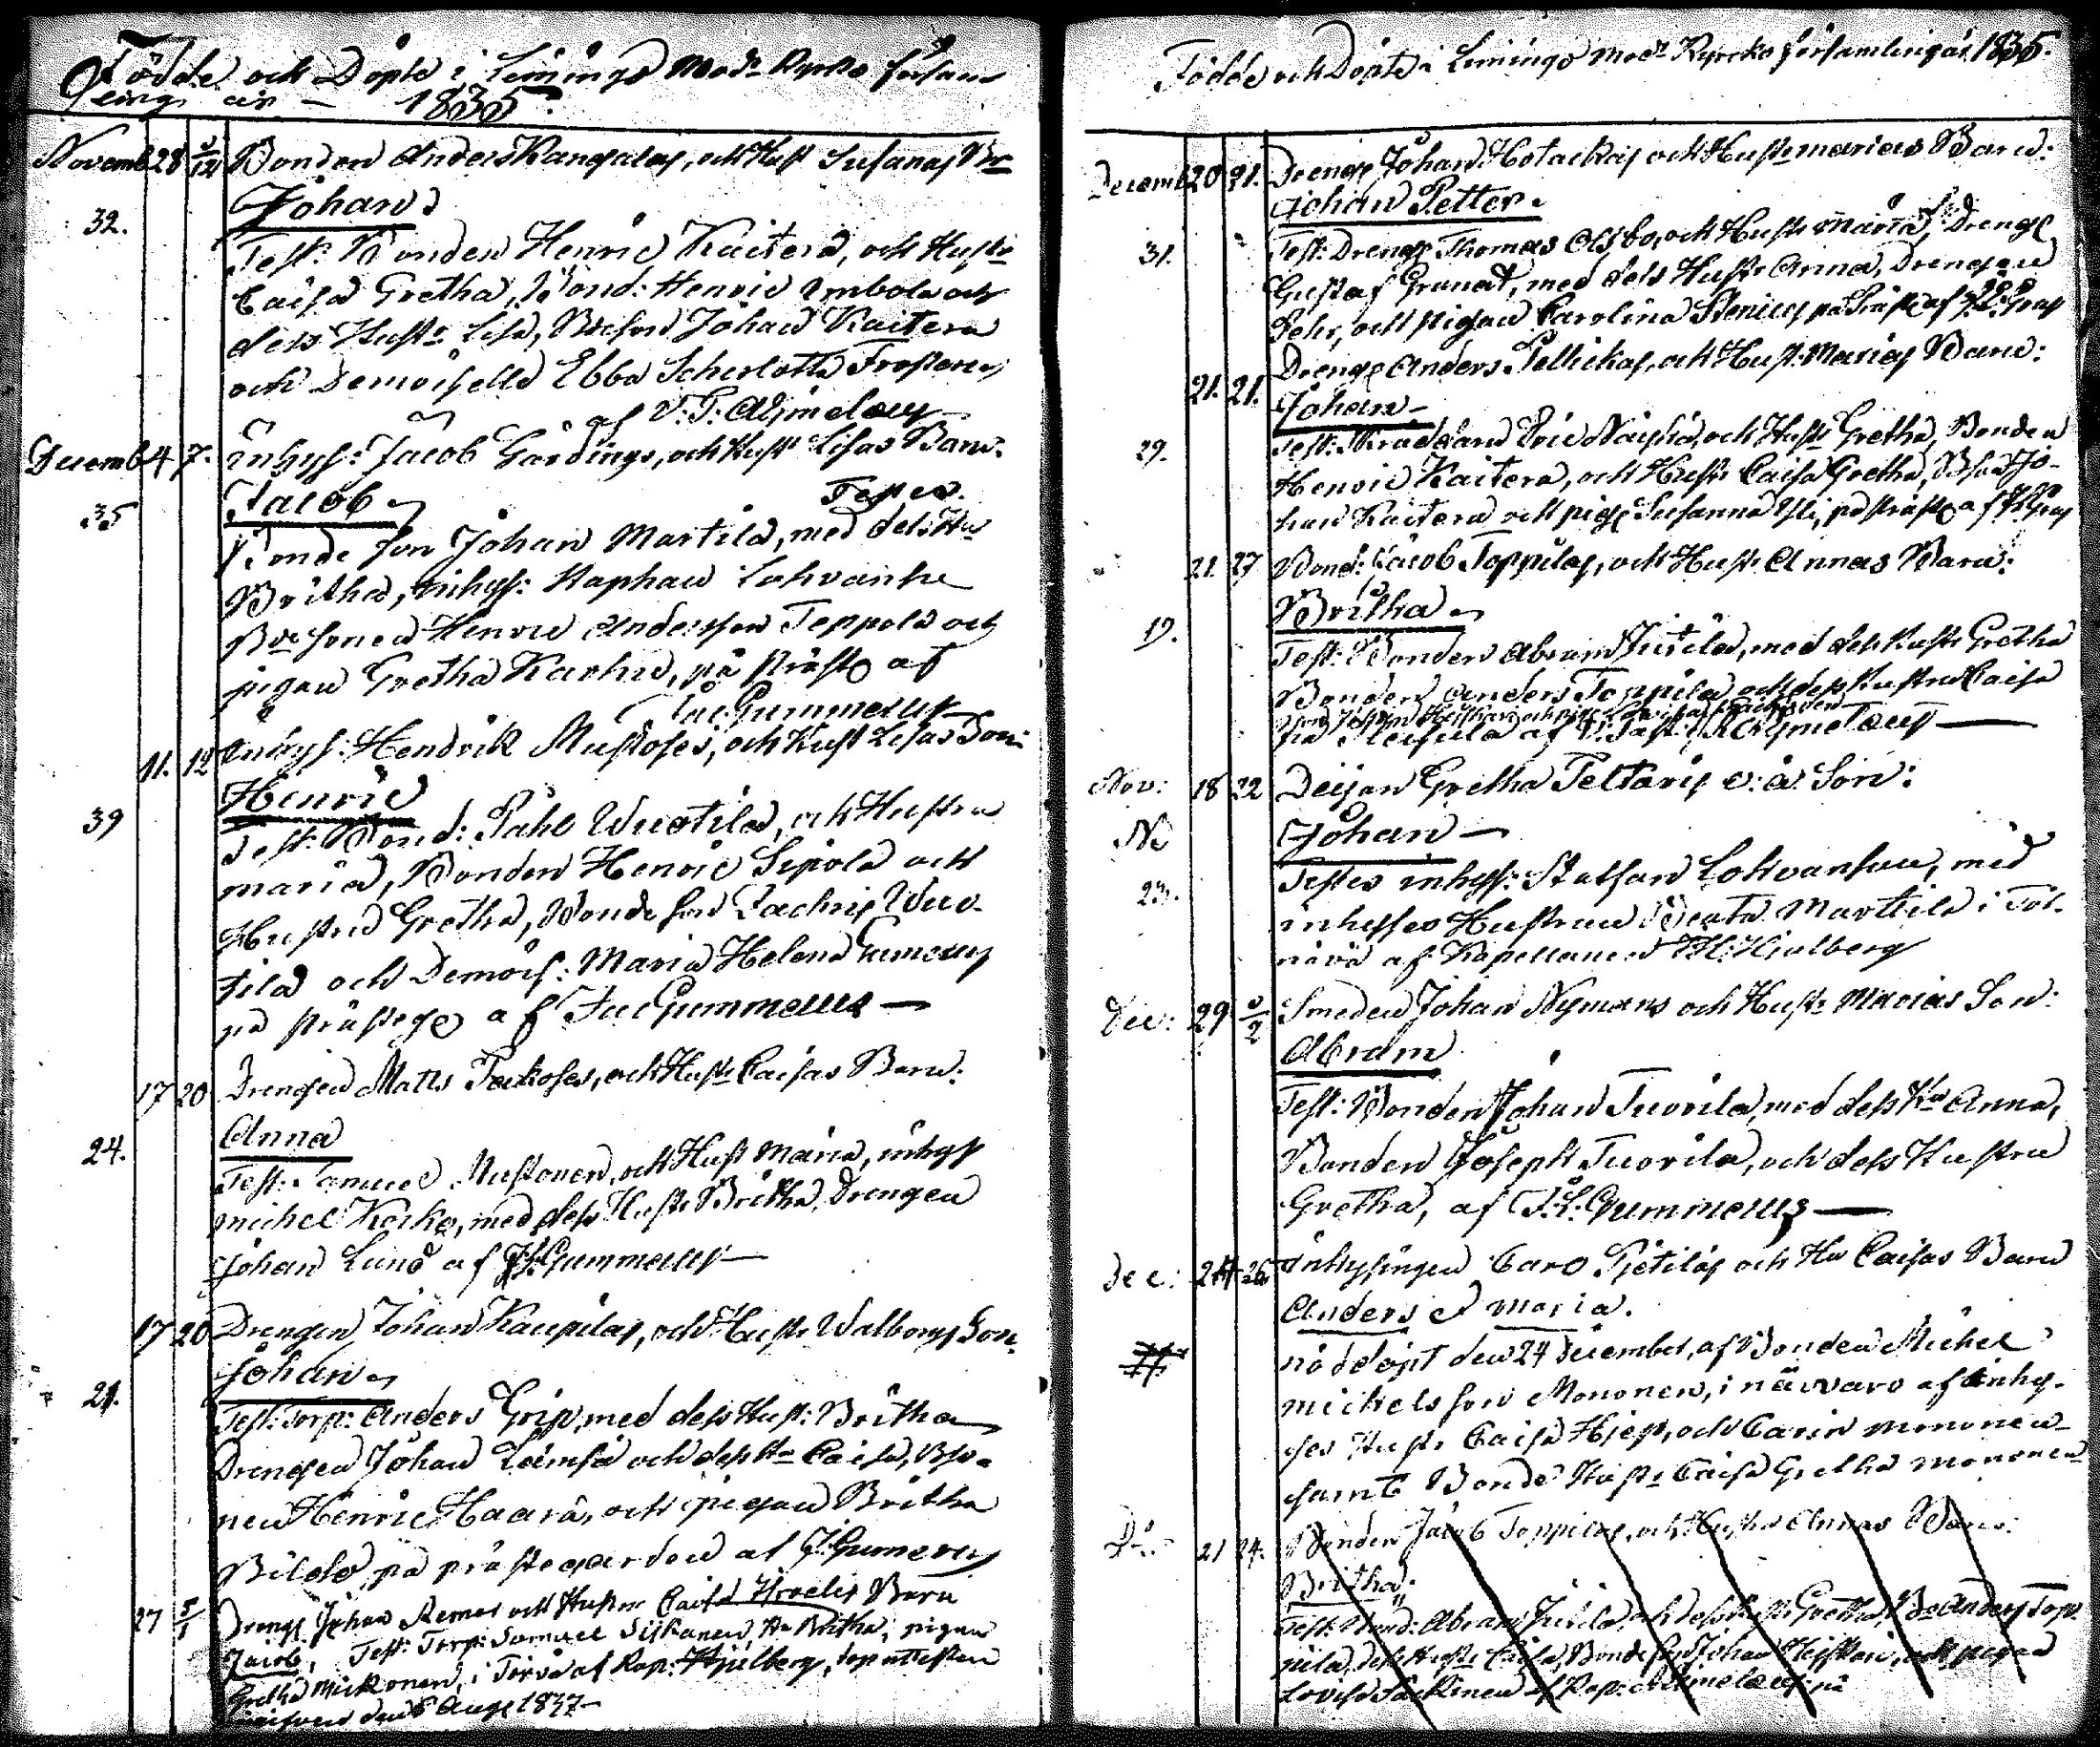 Födde och Döpte i Limingo Mod: Kyrko försam
ling år 1835.
Novemb 28 5/12 Bonden Anders Kangalas, och Hust Susanas Bn
Johan
32.
Test: Bonden Henric Kaitera, och Hustr
Caisa Gretha, Bond: Henric Umbola och
dess Hustr Lisa, Bdeson Johan Kaitera
och Demoiselle Ebba Scherlotta Frosterus
af V: P: Aljmelaeus
Decemb 4 7. Inhys: Jacob Gårdings, och Hust Lisas Barn.
Jacob Testes.
35
Bonde son Johan Martila, med dess Hu
Britha, inhys: Staphan Lohvanhe
Bde sonen Henric Andersson Teppola och
pigan Gretha Karhu, på Prästg af
Jac: Gummerus
11. 12 Inhys: Hendrik Mustoses, och Hust Lisas Son:
Henric
39
Test: Bond: Påhl Wuotila, och Hustru
Maria, Bonden Henric Sipola och
Hustru Gretha, Bonde son Zachris Wuo-
tila och Demois: Maria Helena Gumerus
på prästeg af Jac Gummerus
17 20 Drengen Matts Tackoses, och Hustr Caisas Barn:
Anna
24.
Test: Samuel Mustonen, och Hust Maria, inhys
Michel Kocko, med dess Hustr Britha, Drengen
Johan Lund af J: L: Gummerus
17 20 Drengen Johan Kaupilas, och Hustr Walborgs Son.
Johan
21.
Test: Torp: Anders Grip, med dess Hust: Britha
Drengen Johan Lämsä och dess Hu Caisa, Bso-
nen Henric Haara, och pigan Britha
på prästegården af J: Gumerus
27 5/1 Drenge Johan Remes och Hustru Caisa Barn
Jacob, Test: Torp: Samuel Siskanen, Hu Britha, pigan
Gretha Mickonen, i Törvä af Kap: Hjelberg,
den 6 Aug 1837
Födde och Döpte i Limingo Mod: Kyrcko församling år 1835.
Decemb 20 21. Drenge Johan Hotackas och Hustr Marias Barn:
Johan Petter
31.
Test: Drenge Thomas Olsbo, och Hustr Maria, Drenge
Gustaf Granat, med dess Hustr Anna, Drengen
Fehr, och pigan Carolina Stenius på Prästg af J: L: Gus
21. 21. Drenge Anders Pellickas, och Hust: Marias Barn:
Johan
29.
Test: Skräddarn Eric och Hustr Gretha, Bonden
Henric Kaitera, och Hustr Caisa Gretha, Bson Jo-
han Kaitera och pige Susanna på Prästg af
21. 27 Bond: Jacob Toppilas, och Hustr Annas Barn:
Britha
19.
Test: Bonden Abram Jutila, med dess Hustr Gretha
Bonden Anders Toppila och dess Hustru Caisa
på af V. Past: Alymelaeus
Nov: 18 22 Deijan Gretha Peltaris o: ä: Son:
No Johan
23.
Testes inhys: Staffan Lohvansuu, med
inhyses Hustrun Beata Martila i Tör-
nävä af Kapellanen Hjelberg
Dec: 29 5/2 Smeden Johan Nymans och Hustr Marias Son:
Abram
Test: Bonden Johan Tuorila, med dess Hu Anna,
Bonden Joseph Tuorila, och dess Hustru
Gretha, af J: L: Gummerus
Dec: 24 26. Inhysingen Carl Pjetilas och Hu Caisas Barn
Anders & Maria.
nöddöpt den 24 December, af Bonden Michel
Mickelsson Mononen, i närvaro af inhy-
ses Hustr Caisa Hjep, och Carin Mononen
samt Bonde Hustr Caisa Gretha Mononen
Do 21 24. Bonden Jacob Toppilas, och Hustru Annas Barn:
Britha
Test: Bond: Abram Jutila, och dess Hustr Gretha, Bde Anders Top-
pila, dess Hustr Caisa, Bonde son Johan Heiskari, och pigan
Lovisa Säckinen af Kap: Alimelaeus på